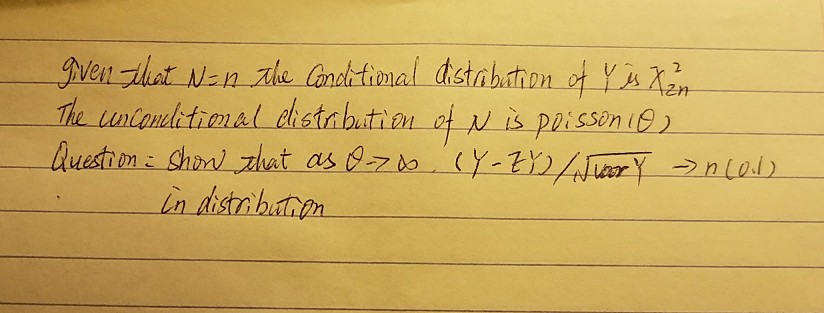 given that N=n the Conditional distribution of Y is X²₂ₙ
The unconditional distribution of N is poisson(θ)
Question: Show that as θ→∞. (Y-EY)/√var Y → n(0.1)
in distribution